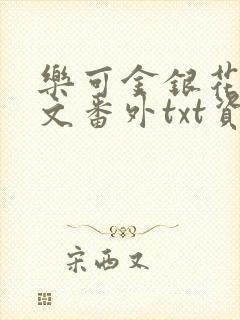 樂可金銀花
文番外txt資
宋西又